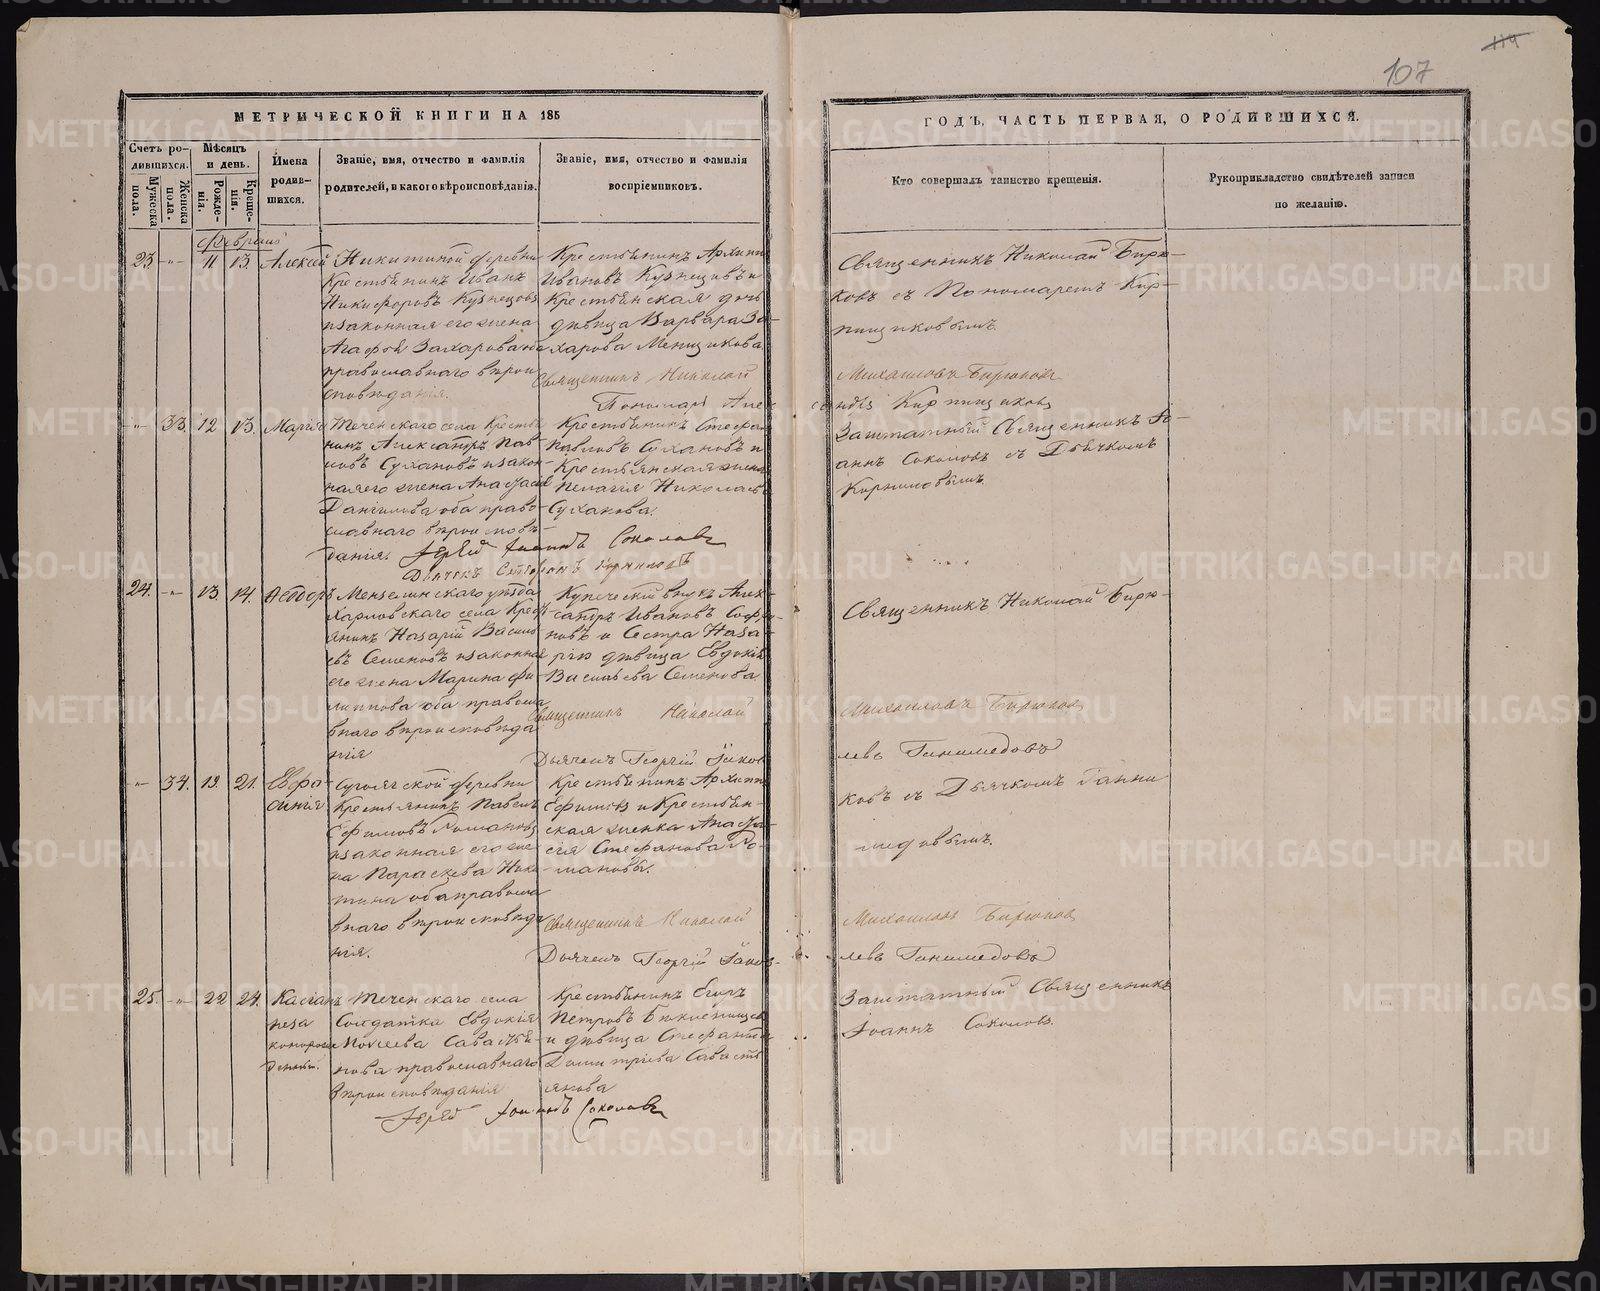 107
МЕТРИЧЕСКОЙ КНИГИ НА 185
ГОДЪ, ЧАСТЬ ПЕРВАЯ, О РОДИВШИХСЯ.
Счетъ родившихся.
Мужеска пола.
Женска пола.
Мѣсяцъ и день.
Рожденія.
Крещенія.
Имена родившихся.
Званіе, имя, отчество и фамилія
родителей, и какого вѣроисповѣданія.
Званіе, имя, отчество и фамилія
воспріемниковъ.
Кто совершалъ таинство крещенія.
Рукоприкладство свидѣтелей записи
по желанію.
февраль
23. -„- 11 13. Алексѣй
Никитиной деревни
Крестьянинъ Иванъ
Никифоровъ Кузнецовъ
и законная его жена
Агафья Захарова оба
православнаго вѣрои
сповѣданія.
Крестьянинъ Архипъ
Ивановъ Кузнецовъ и
Крестьянская дочь
дѣвица Варвара За-
харова Менщикова
Священникъ Николай Бирю-
ковъ съ Пономаремъ Кир-
пищиковымъ.
Священникъ Николай Михайловъ Бирюковъ
Пономарь Александръ Кирпищиковъ
-„- 33. 12 13. Марія
Теченскаго села Кресть
нинъ Александръ Пав-
ловъ Сухановъ и закон-
ная его жена Анастасія
Данилова оба право-
славнаго вѣроисповѣ-
данія.
Крестьянинъ Стефанъ
Павловъ Сухановъ и
Крестьянская жена
Пелагія Николаева
Суханова.
Заштатный Священникъ Іо-
аннъ Соколовъ съ Дьячкомъ
Корниловымъ
Іерей Іоаннъ Соколовъ
24. -„- 13. 14. Ѳеодоръ
Мензелинскаго уѣзда
Харловскаго села Крест
янинъ Назарій Василь
евъ Семеновъ и законная
его жена Марина Фи
липпова оба правосла
внаго вѣроисповѣда
нія
Купеческій внукъ Алек-
сандръ Ивановъ
новъ и Сестра Наза-
рію дѣвица Евдокія
Васильева Семенова
Священникъ Николай Бирю-
Священникъ Николай Михайловъ Бирюковъ
Дьячекъ Георгій Яковлевъ Ганимедовъ
-„- 34. 19. 21. Евфро-
синія
деревни
Крестьянинъ Павелъ
Ефимовъ Романовъ
и законная его же
на Параскева Ники
тина оба правосла
внаго вѣроисповѣда
нія.
Крестьянинъ Архипъ
Ефимовъ и Крестьян-
ская женка Анаста-
сія Стефанова Ро-
мановы.
ковъ съ Дьячкомъ Ганни
медовымъ.
Священникъ Николай Михайловъ Бирюковъ
Дьячекъ Георгій Яковлевъ Ганимедовъ
25. -„- 22 24. Касіанъ
неза
конорож
денный.
Теченскаго села
Солдатка Евдокія
Моисеева Савастья-
нова православнаго
вѣроисповѣданія
Крестьянинъ Егоръ
Петровъ
и дѣвица Стефанида
Димитріева Савасть
янова
Заштатный Священникъ
Іоаннъ Соколовъ.
Іерей Іоаннъ Соколовъ
METRIKI.GASO-URAL.RU